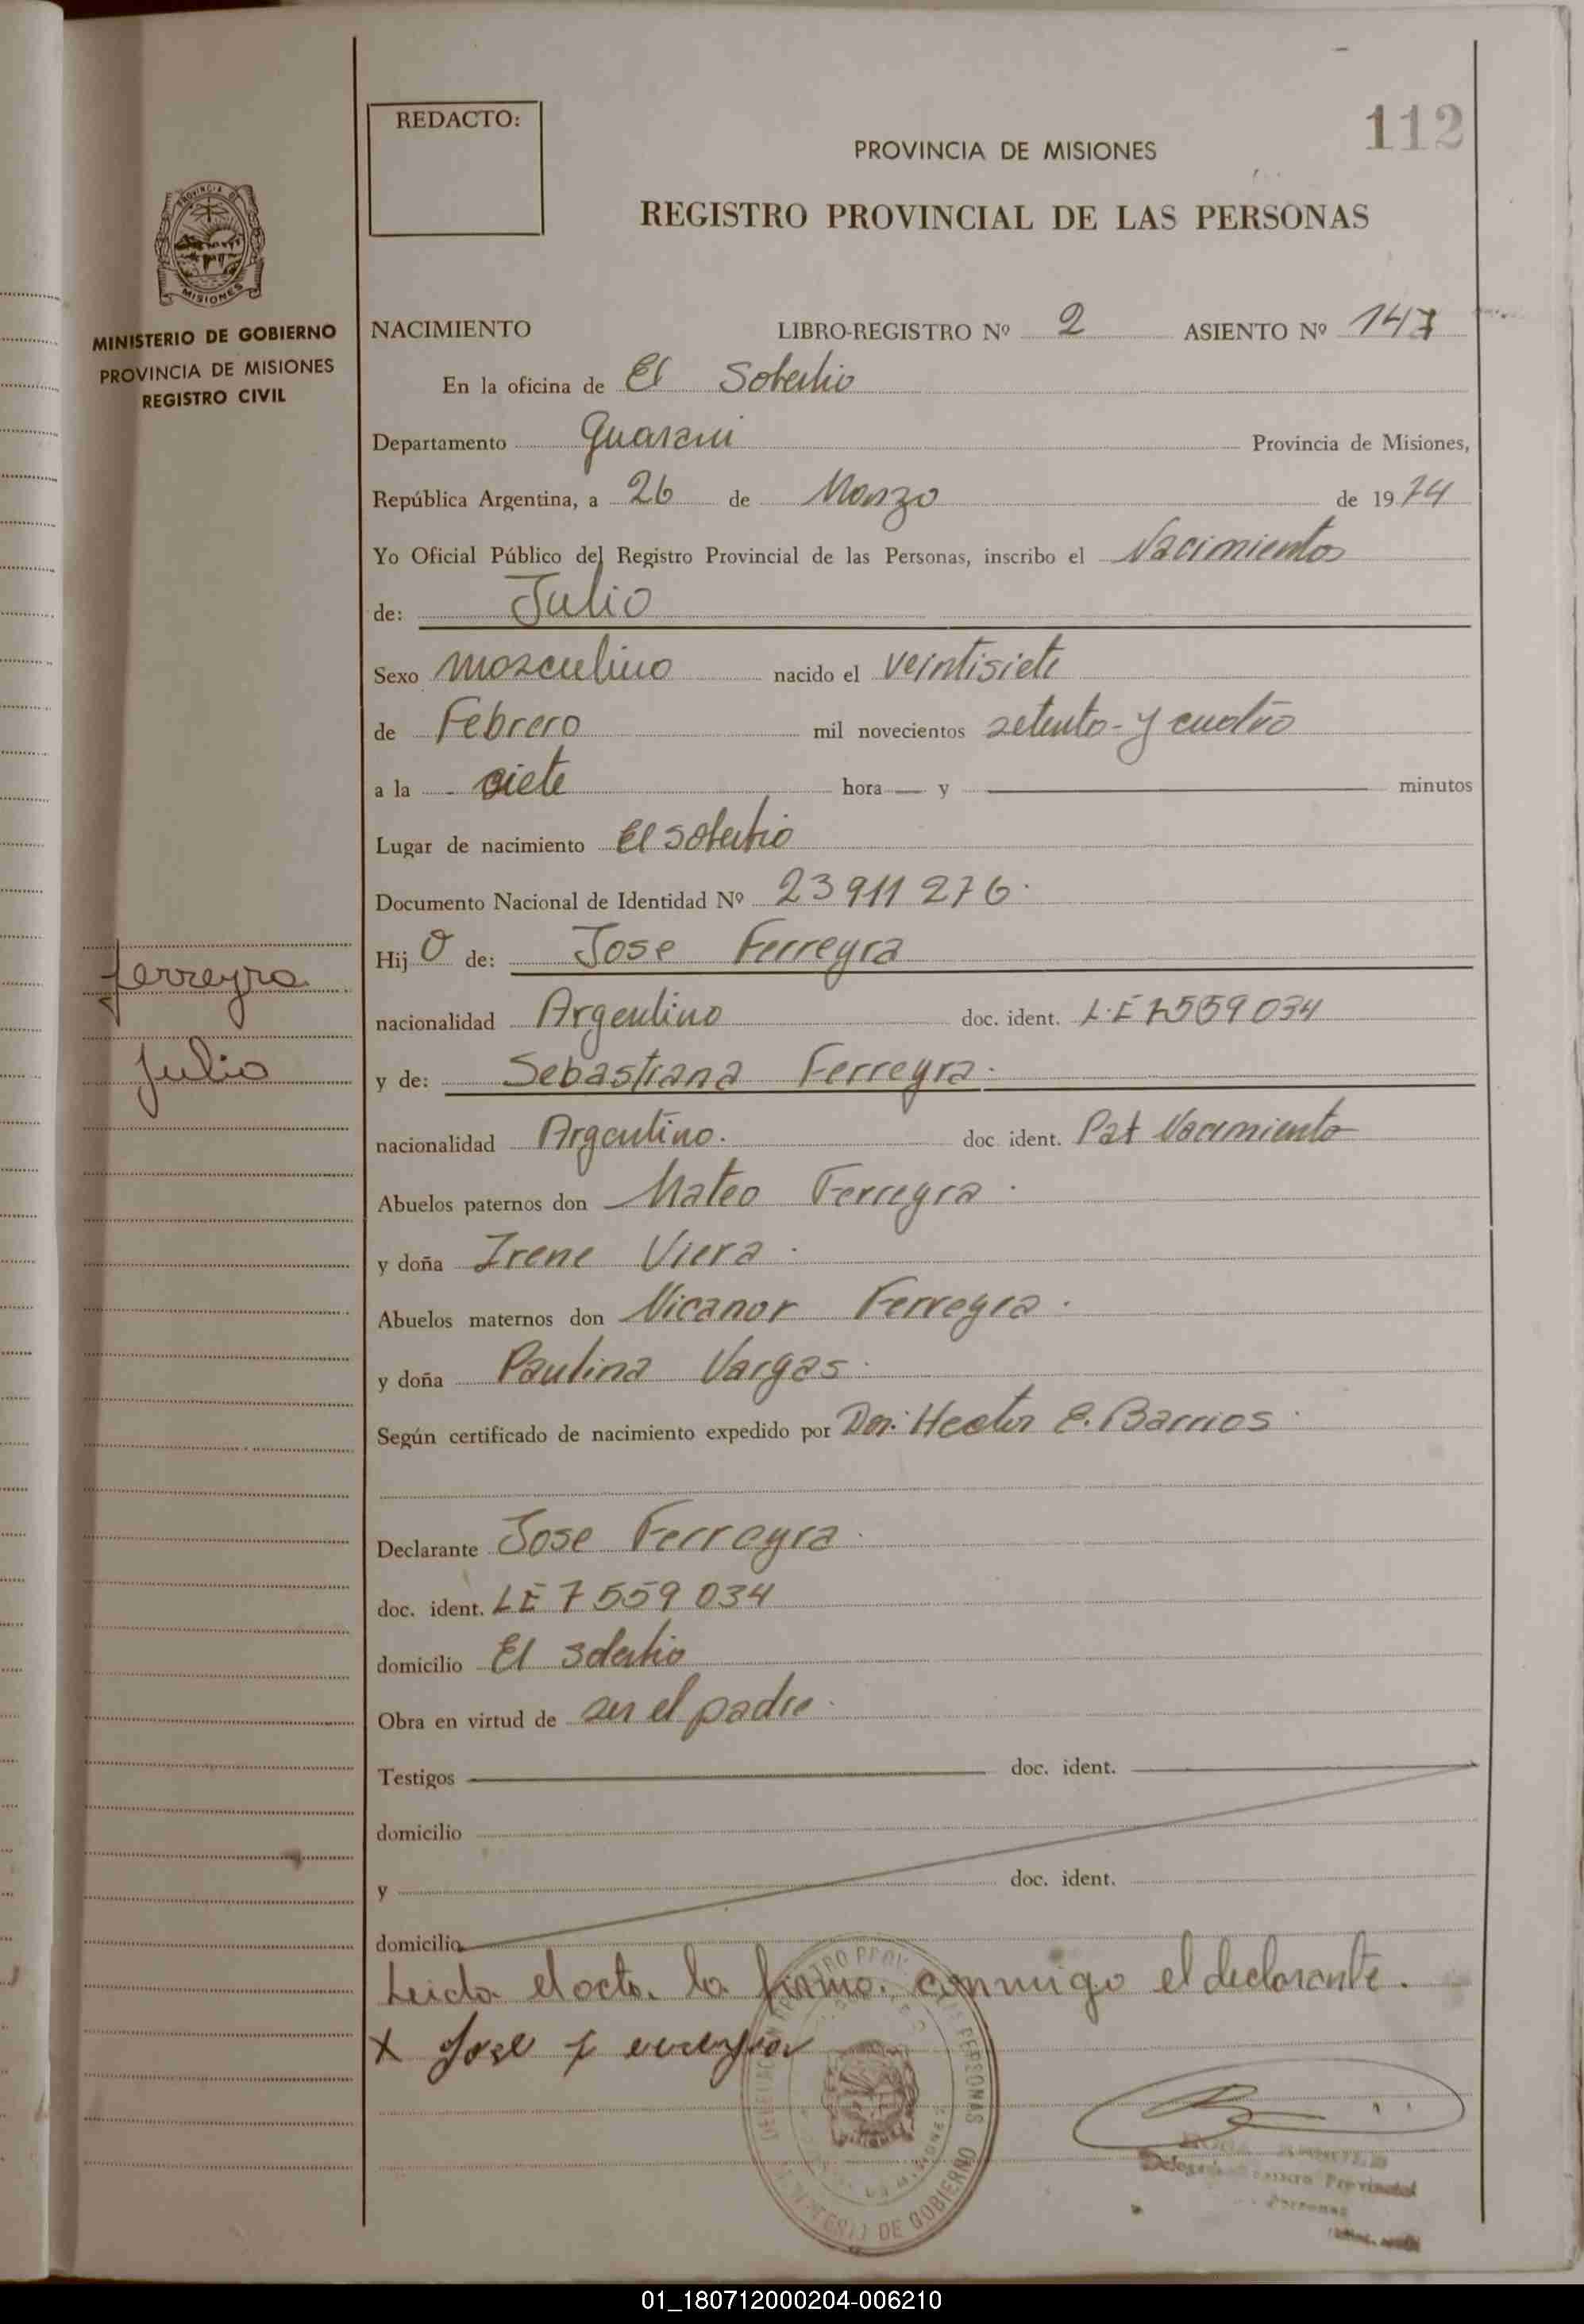 REDACTO:
112
PROVINCIA DE MISIONES
REGISTRO PROVINCIAL DE LAS PERSONAS
PROVINCIA DE
MISIONES
MINISTERIO DE GOBIERNO
PROVINCIA DE MISIONES
REGISTRO CIVIL
NACIMIENTO LIBRO-REGISTRO Nº 2 ASIENTO Nº 147
En la oficina de El Soberbio
Departamento Guarani Provincia de Misiones,
República Argentina, a 26 de Marzo de 1974
Yo Oficial Público del Registro Provincial de las Personas, inscribo el Nacimiento
de: Julio
Sexo masculino nacido el veintisiete
de Febrero mil novecientos setenta y cuatro
a la siete hora y minutos
Lugar de nacimiento El soberbio
Documento Nacional de Identidad Nº 23911276.
Hij O de: Jose Ferreyra
nacionalidad Argentino doc. ident. L.E 7559034
y de: Sebastiana Ferreyra.
nacionalidad Argentino. doc ident. Pat Nacimiento
Abuelos paternos don Mateo Ferreyra.
y doña Irene Viera.
Abuelos maternos don Nicanor Ferreyra.
y doña Paulina Vargas.
Según certificado de nacimiento expedido por Hector E. Barrios.
Ferreyra
Julio
Declarante Jose Ferreyra.
doc. ident. LE 7559034
domicilio El soberbio
Obra en virtud de ser el padre.
Testigos doc. ident.
domicilio
y doc. ident.
domicilio
Leida el acta. la firma. conmigo el declarante.
x Jose
PERSONAS
DE GOBIERNO
Provincial
Personas
01_180712000204-006210